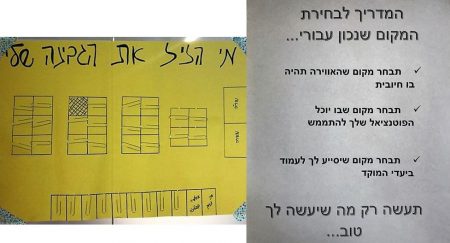 מי הזיל את הגבינה שלי
המדריך לבחירת
המקום שנכון עבורי...
✓ תבחר מקום שהאווירה תהיה
בו חיובית
✓ תבחר מקום שבו יוכל
הפוטנציאל שלך להתממש
✓ תבחר מקום שיסייע לך לעמוד
ביעדי המוקד
תעשה רק מה שיעשה לך
טוב...